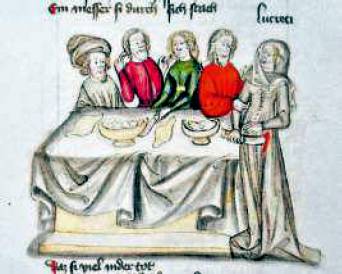 Ein messer si durch sich stach
Lucreci
Daz si viel nider tot